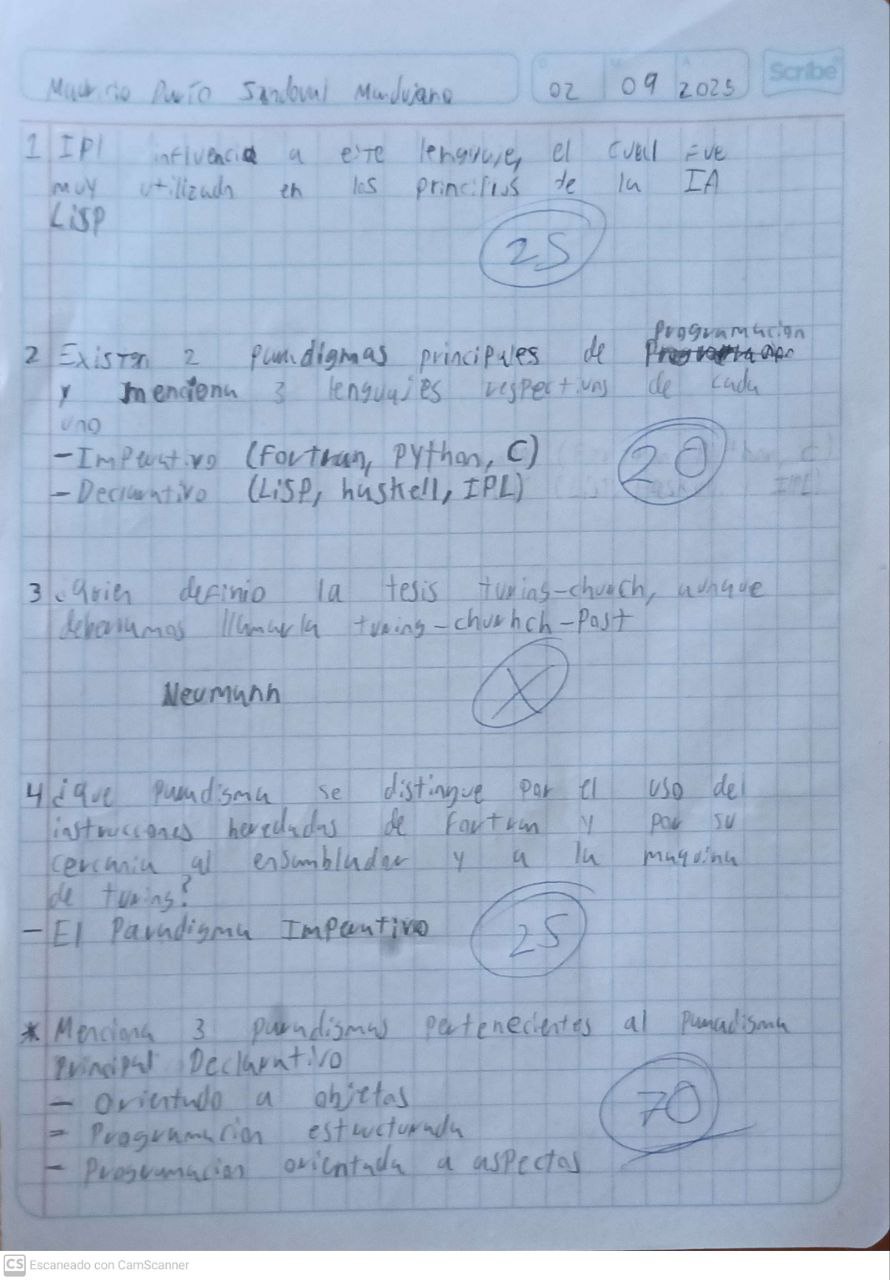 Mauricio Sandoval Mandujano 02 09 2025 Scribe
1 IPl influencia a este lenguaje, el cual fue
muy utilizado en los principios de la IA
LiSP
25
Programacion
2 Existen 2 paradigmas principales de
y menciona 3 lenguajes respectivos de cada
uno
- Imperativo (Fortran, Python, C)
20
- Declarativo (LiSP, haskell, IPL)
3 ¿Quien definio la tesis turing-church, aunque
deberiamos llamarla turing-churhch-Post
Neumann
X
4 ¿Que paradisma se distingue por el uso del
instrucciones heredadas de Fortran y por su
cercania al ensamblador y a la maquina
de turing?
- El Paradigma Imperativo
25
* Menciona 3 paradismas pertenecientes al paradisma
principal Declarativo
- Orientado a objetos
70
- Programacion estructurada
- Programacion orientada a aspectos
CS Escaneado con CamScanner